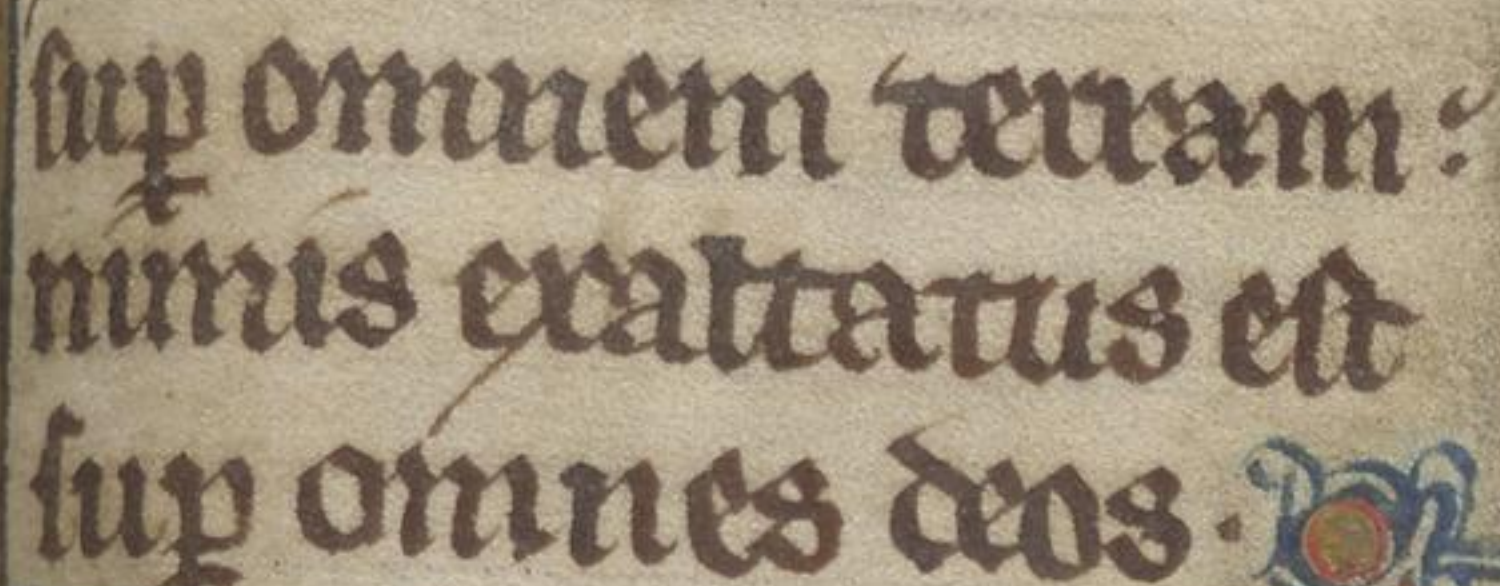 suꝑ omnem terram:
nimis exaltatus est
suꝑ omnes deos.